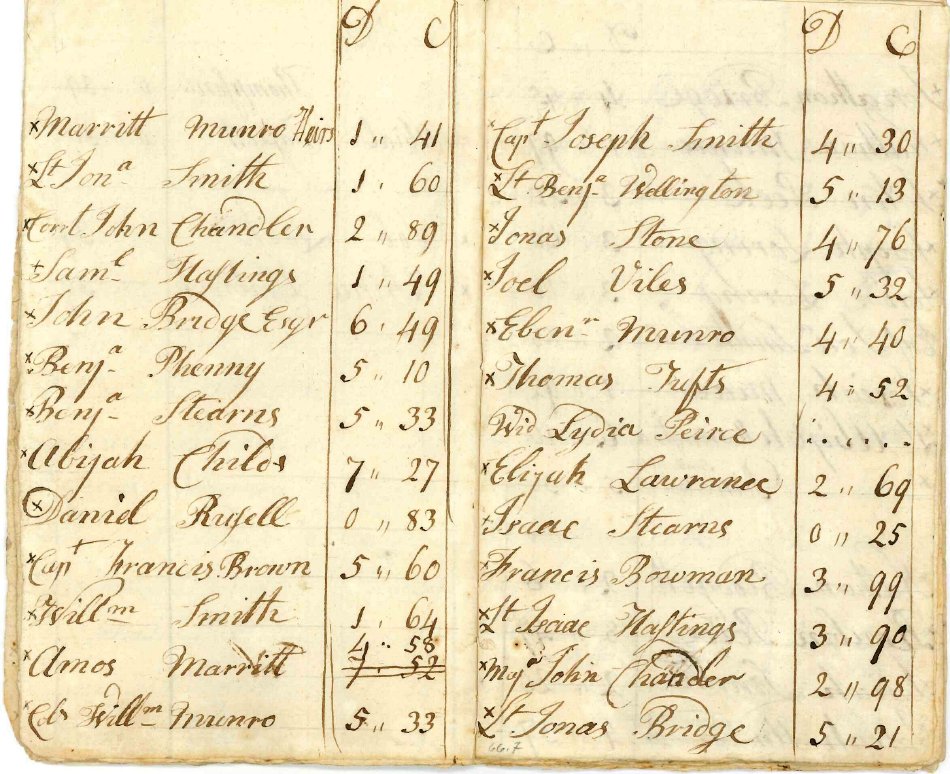 D C
×Marritt Munro Heirs 1 " 41
×Lt Jona Smith 1 " 60
×Cornt John Chandler 2 " 89
×Saml Hastings 1 " 49
×John Bridge Esqr 6 " 49
×Benja Phenny 5 " 10
×Benja Stearns 5 " 33
×Abijah Childs 7 " 27
×Daniel Rusell 0 " 83
×Capt Francis Brown 5 " 60
×Willm Smith 1 " 64
4 " 58
×Amos Marritt 7 " 52
×Col Willm Munro 5 " 33
D C
×Capt Joseph Smith 4 " 30
×Lt Benja Wellington 5 " 13
×Jonas Stone 4 " 76
×Joel Viles 5 " 32
×Ebenr Munro 4 " 40
×Thomas Tufts 4 " 52
Wid Lydia Peirce
×Elijah Lawrance 2 " 69
×Isaac Stearns 0 " 25
×Francis Bowman 3 " 99
×Lt Isaac Hastings 3 " 90
×Majr John Chandler 2 " 98
×Lt Jonas Bridge 5 " 21
66.7